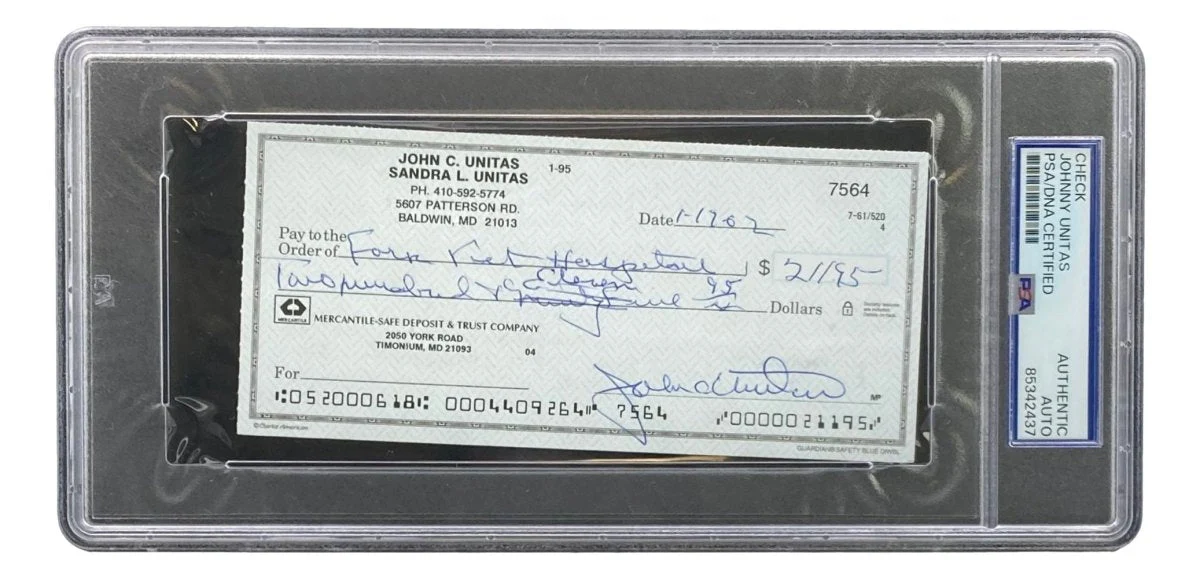 JOHN C. UNITAS 1-95
SANDRA L. UNITAS
PH. 410-592-5774
5607 PATTERSON RD.
BALDWIN, MD 21013
7564
7-61/520
4
Date 1-17 02
Pay to the
Order of Fork Vet Hospital $ 211 95
Eleven
Two hundred & 95 Dollars
MERCANTILE
MERCANTILE-SAFE DEPOSIT & TRUST COMPANY
2050 YORK ROAD
TIMONIUM, MD 21093 04
For
John C Unitas
MP
⑆052000618⑆ 0004409264⑈ 7564 ⑈0000021195⑈
GUARDIAN® SAFETY BLUE
CHECK
JOHNNY UNITAS
PSA/DNA CERTIFIED
PSA
AUTHENTIC
AUTO
85342437